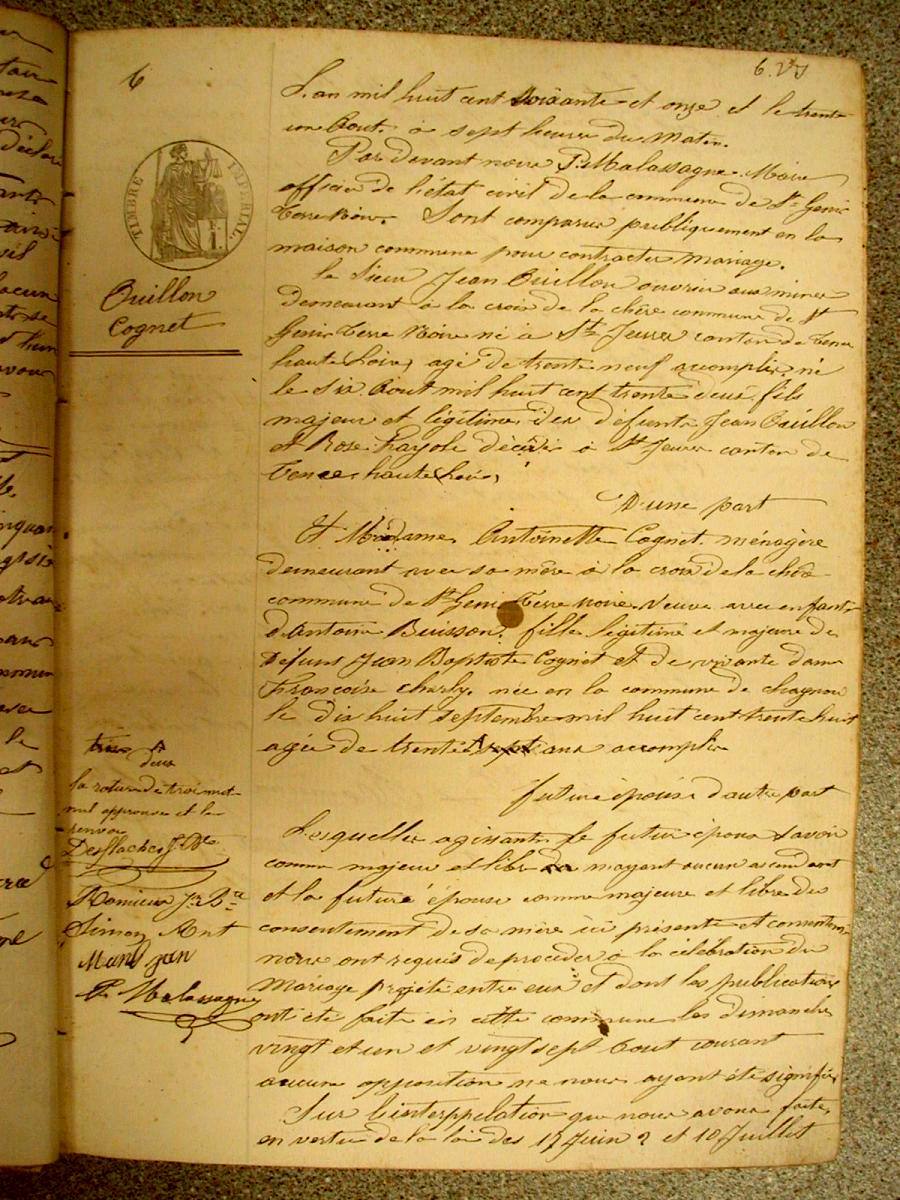 6
6. Vo
TIMBRE IMPERIAL
1 F
Ouillon
Cognet
L'an mil huit cent soixante et onze et le trente
un Aout à sept heures du Matin.
Par devant nous P. Malassagne Maire
officier de l'état civil de la commune de St Genis
terre Noire. Sont comparus publiquement en la
maison commune pour contracter mariage.
le Sieur Jean Ouillon ouvrier aux mines
demeurant à la croix de la chèvre commune de St
Genis terre Noire né à St Jeures canton de Tence
haute Loire, agé de trente neuf accomplis, né
le six Aout mil huit cent trente deux, fils
majeur et légitime des défunts Jean Ouillon
et Rose Fayole décédés à St Jeures canton de
Tence haute Loire,
D'une part
Et Madame Antoinette Cognet ménagère
demeurant avec sa mère à la croix de la
commune de St Genis Terre noire. Veuve avec enfants
d'Antoine Buisson, fille légitime et majeure de
défunt Jean Baptiste Cognet et de vivante dame
Françoise Charly. née en la commune de chagnon
le dix huit septembre mil huit cent trente huit
agée de trente sept ans accomplis
future épouse d'autre part
Lesquelles agissant, le futur époux savoir
comme majeur et libre nayant aucun ascendant
et la future épouse comme majeure et libre du
consentement de sa mère ici présente et consentante
nous ont requis de procéder à la célébration du
Mariage projeté entre eux et dont les publications
ont été faite en cette commune les dimanches
vingt et un et vingt sept Aout courant
aucune opposition ne nous ayant été signifiée
Sur l'interppelation que nous avons faite,
en vertu de la loi des 17 Juin 2 et 10 Juillet
deux
la rature de trois mot
nul approuvé et le
renvoi
Desflaches J. Bte
Romieux Jn Bte
Simon Ant
jean
P. Malassagne